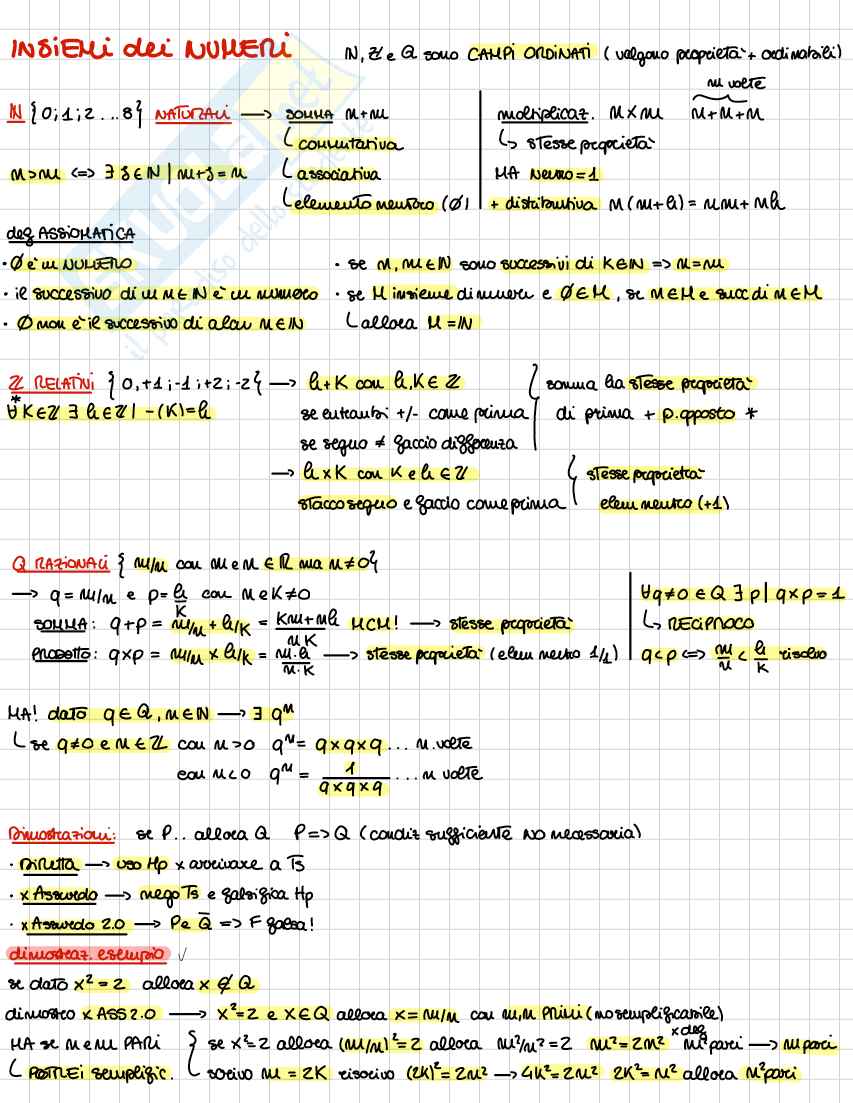 INSIEMI dei NUMERI
N, Z e Q sono CAMPI ORDINATI (valgono proprietà + ordinabili)
N {0;1;2 ...8} NATURALI → SOMMA n+m
└ commutativa
└ associativa
└ elemento neutro (Ø)
n>m <=> ∃ s∈N | m+s=n
moltiplicaz. n×m n+n+n m volte
↳ stesse proprietà
MA neutro=1
+ distributiva n(m+h) = nm+nh
def ASSIOMATICA
• Ø è un NUMERO
• il successivo di un n∈N è un numero
• Ø non è il successivo di alcun n∈N
• se n, m∈N sono successivi di K∈N => n=m
• se M insieme di numeri e Ø∈M, se n∈M e succ di n∈M
└ allora M=N
Z RELATIVI {0,+1;-1;+2;-2} → h+K con h,K∈Z
* ∀K∈Z ∃ h∈Z | -(K)=h
se entrambi +/- come prima
se segno ≠ faccio differenza
somma ha stesse proprietà
di prima + p.opposto *
→ h×K con K e h∈Z
stacco segno e faccio come prima
stesse proprietà
elem neutro (+1)
Q RAZIONALI { m/n con m e n ∈ R ma n≠0}
→ q=m/n e p=h/K con n e K≠0
SOMMA: q+p = m/n + h/K = Km+nh/nK MCM! → stesse proprietà
PRODOTTO: q×p = m/n × h/K = m·h/n·K → stesse proprietà (elem neutro 1/1)
∀q≠0 ∈ Q ∃ p | q×p=1
↳ RECIPROCO
q<p <=> m/n < h/K risolvo
MA! dato q∈Q, n∈N → ∃ qⁿ
└ se q≠0 e n∈Z con n>0 qⁿ = q×q×q ... n.volte
con n<0 qⁿ = 1/q×q×q ... n volte
Dimostrazioni: se P.. allora Q P=>Q (condiz sufficiente NO necessaria)
• Diretta → uso Hp x arrivare a Ts
• x Assurdo → nego Ts e falsifica Hp
• x Assurdo 2.0 → P e Q̅ => F falsa!
dimostraz. esempio √
se dato x²=2 allora x∉Q
dimostro x ASS 2.0 → x²=2 e x∈Q allora x=m/n con m,n PRIMI (no semplificabile)
MA se m e n PARI
└ POTREI semplific.
se x²=2 allora (m/n)²=2 allora m²/n²=2 m²=2n² x def m² pari → m pari
scrivo m=2K riscrivo (2K)²=2n² → 4K²=2n² 2K²=n² allora n² pari